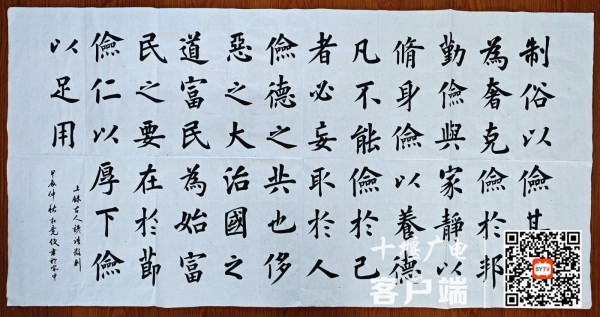 制俗以儉
為奢克儉於邦
勤儉與家靜以
脩身儉以養德
凡不能儉於己
者必妄取於人
儉德之共也侈
惡之大治國之
道富民為始富
民之要在於節
儉仁以厚下儉
以足用
上錄古人語錄數則
甲辰仲秋
十堰广电
客户端
SYTV